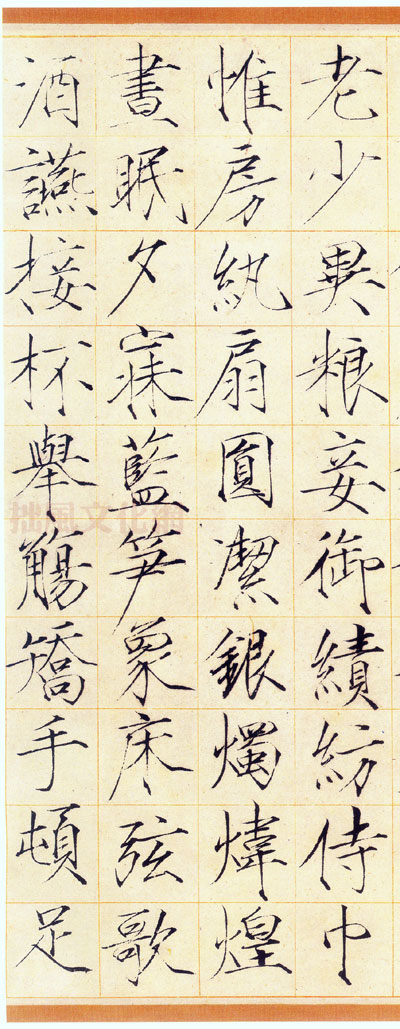 老少異粮妾御績紡侍巾
帷房紈扇圓潔銀燭煒煌
晝眠夕寐藍笋象床弦歌
酒讌接杯舉觴矯手頓足
拙風文化網